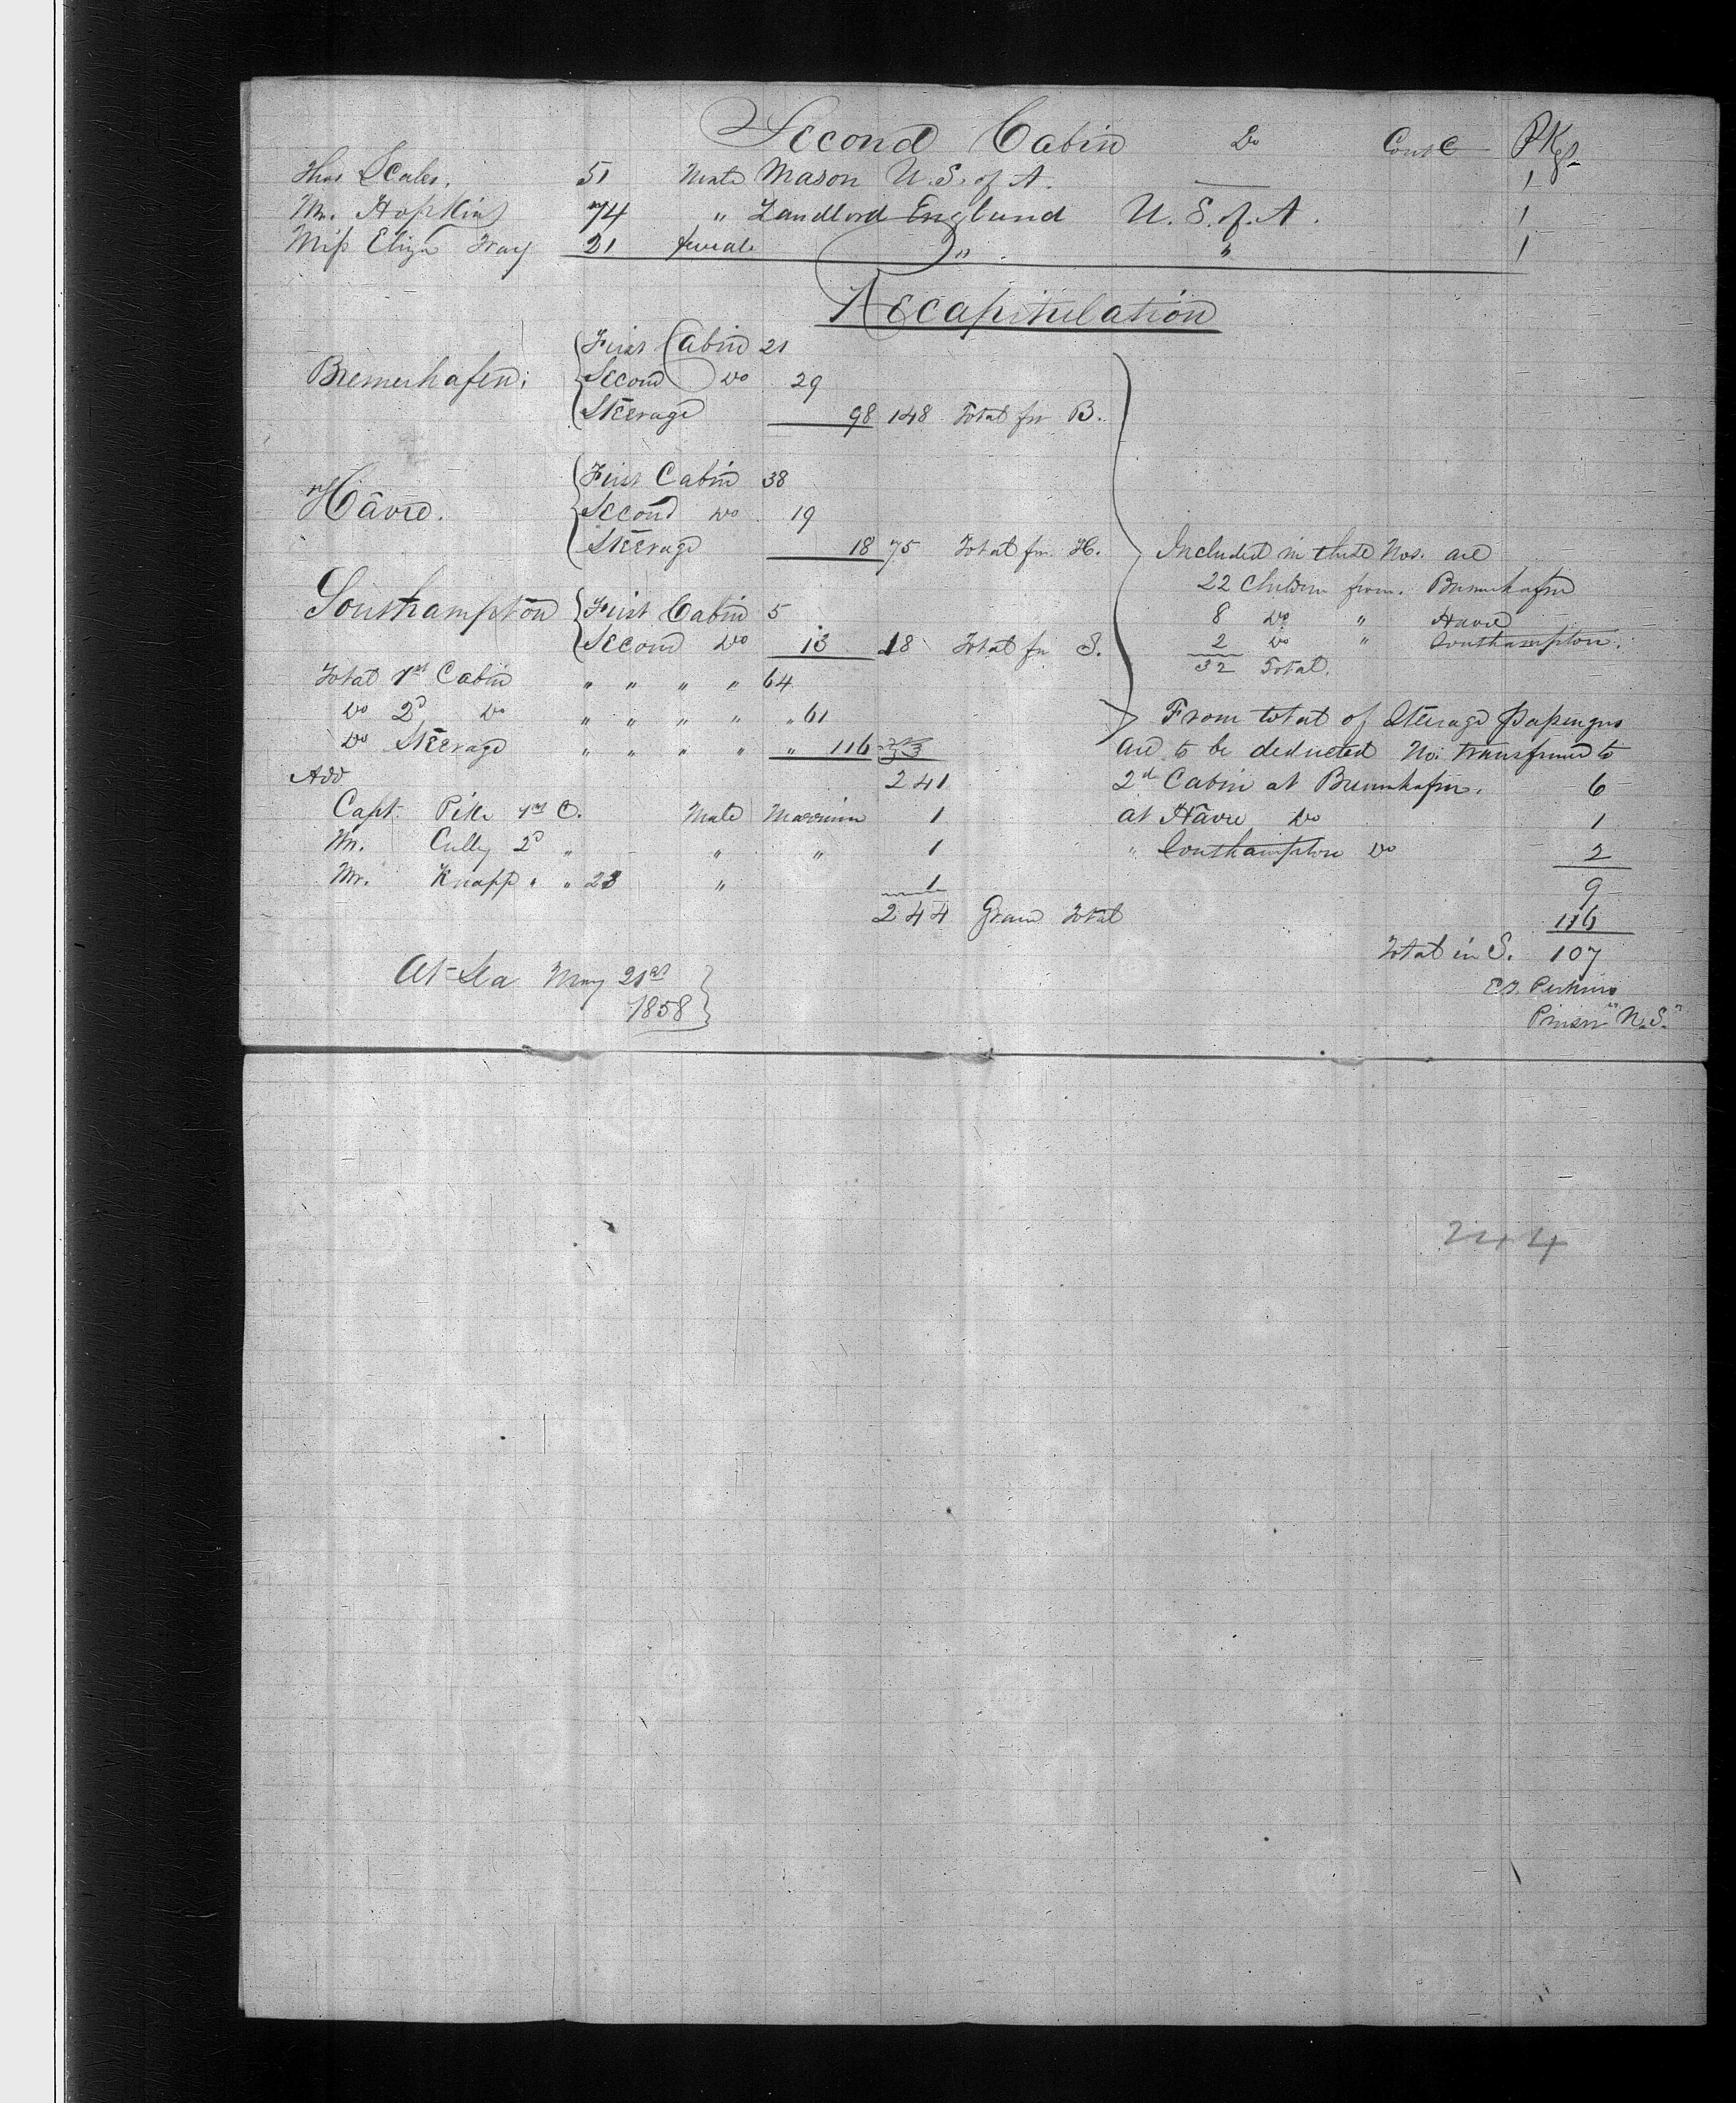 Second Cabin Do Contd Pkgs
Thos Scales. 51 Male Mason U.S. of A. 1
Mr. Hopkins 74 " Landlord England U.S. of A. 1
Miss Eliza Way 21 female " " 1
Recapitulation
Bremerhafen: First Cabin 21
Second Do 29
Steerage 98 148 Total fm B.
Hâvre. First Cabin 38
Second Do 19
Steerage 18 75 Total fm. H.
Southampton First Cabin 5
Second Do 13 18 Total fm S.
Total 1st Cabin " " " " 64
Do 2d Do " " " " " 61
Do Steerage " " " " " 116
241
Add
Capt. Pike 1st C. Male Marriner 1
Mr. Cully 2d " " " 1
Mr. Knapp " " 23 " 1
244 Gran Total
Included in these Nos. are
22 Children from. Bremerhafen
8 Do " Havre
2 Do " Southampton.
32 Total.
From total of Steerage passengers
are to be deducted No. transferred to
2d Cabin at Bremerhafen. 6
at Hâvre Do 1
" Southampton Do 2
9
116
Total in S. 107
At Sea May 21st
1858
Perkins
Purser "N.S."
244